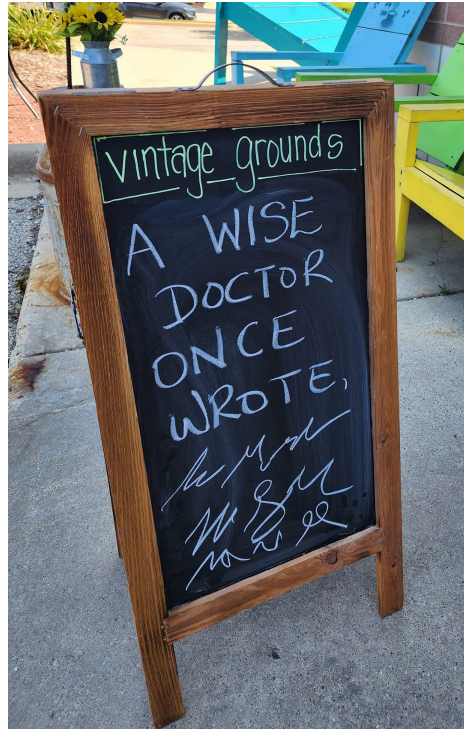 vintage grounds
A WISE
DOCTOR
ONCE
WROTE,